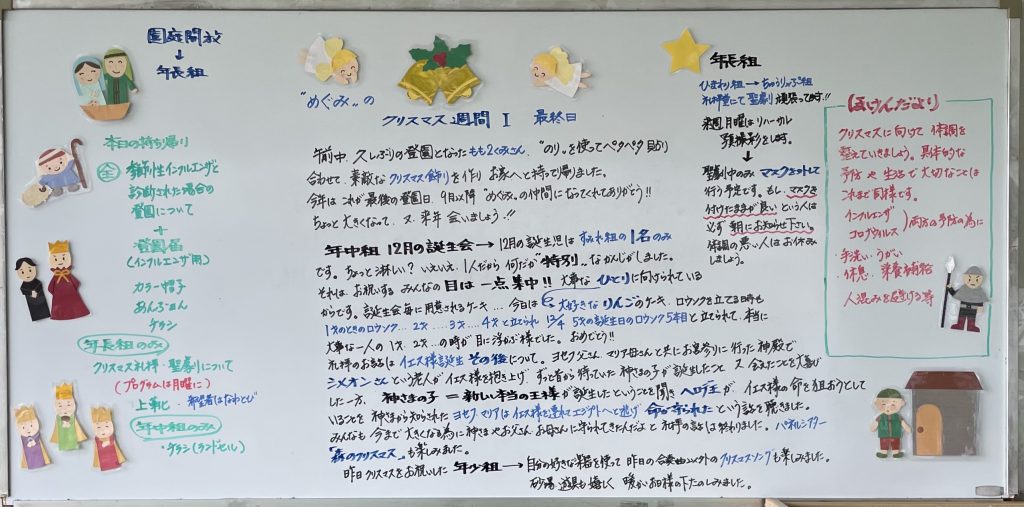 園庭開放
↓
年長組
本日の持ち帰り
全 季節性インフルエンザと
診断された場合の
登園について
+
登園届
(インフルエンザ用)
カラー帽子
あんぶぉん
チラシ
年長組のみ
クリスマス礼拝・聖劇について
(プログラムは月曜に)
上靴・希望者はなわとび
年中組のみ
・チラシ(ランドセル)
"めぐみ"の
クリスマス週間 I 最終日
午前中、久しぶりの登園となったもも2くみさん、"のり"を使ってペタペタ貼り
合わせて、素敵なクリスマス飾りを作り お家へと持って帰りました。
今年は これが最後の登園日、9月以降 "めぐみ"の仲間になってくれてありがとう!!
ちょっと大きくなって、又、来年 会いましょう.!!
年中組 12月の誕生会→12月の誕生児は すみれ組の1名のみ
です。ちょっと淋しい? いえいえ、1人だから何だか"特別"なかんじがしました。
それは、お祝いする みんなの目は一点集中!! 大事な ひとりに向けられている
からです。誕生会毎に用意されるケーキ... 今日は 大好きなりんごのケーキ、ロウソクを立てる時も
1才のときのロウソク...2才...3才...4才と立てられ 12/4 5才の誕生日のロウソク5本目と立てられて、本当に
大事な一人の1才、2才...の時が目に浮かぶ様でした。おめでとう!!
礼拝のお話は イエス様誕生その後について。ヨセフ父さん、マリア母さんと共にお宮参りに行った神殿で
シメオンさんという老人がイエス様を抱き上げ、ずっと昔から待っていた神さまの子が誕生したこと 又 会えたことを大喜び
した一方、神さまの子=新しい本当の王様が誕生したということを聞き ヘロデ王が、イエス様の命を狙おうとして
いることを 神さまから知らされた ヨセフ、マリアはイエス様を連れてエジプトへと逃げ 命が守られたという話を聴きました。
みんなも 今まで 大きくなる為に 神さまやお父さん、お母さんに守られてきたんだよと礼拝の話は終わりました。パネルシアター
「森のクリスマス」も楽しみました。
昨日クリスマスをお祝いした 年少組→自分の好きな楽器を使って 昨日の合奏曲以外のクリスマスソングも楽しみました。
砂場道具も嬉しく 暖かいお日様の下たのしみました。
年長組
ひまわり組→ちゅうりっぷ組
礼拝堂にて聖劇頑張ってます!!
来週月曜はリハーサル
予備撮影をします。
↓
聖劇中のみ マスクを外して
行う予定です。もし、マスクを
付けたままが良いという人は
必ず朝にお知らせ下さい。
体調の悪い人はお休み
しましょう。
ほけんだより
クリスマスに向けて 体調を
整えていきましょう。具体的な
予防や生活で大切なことは
これまで同様です。
インフルエンザ
コロナウイルス )両方の予防の為に
・手洗い・うがい
・休息、栄養補給
人混みを避ける等